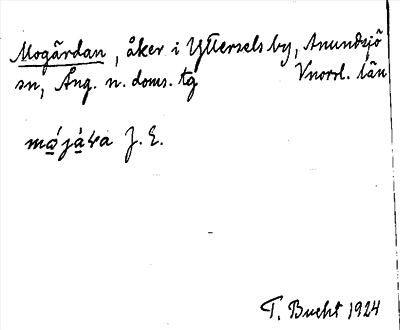 Mogårdan, åker i Yttersels by, Anundsjö
sn, Ång. n. doms. tg Vnorrl. län
J. E.
T. Bucht 1924